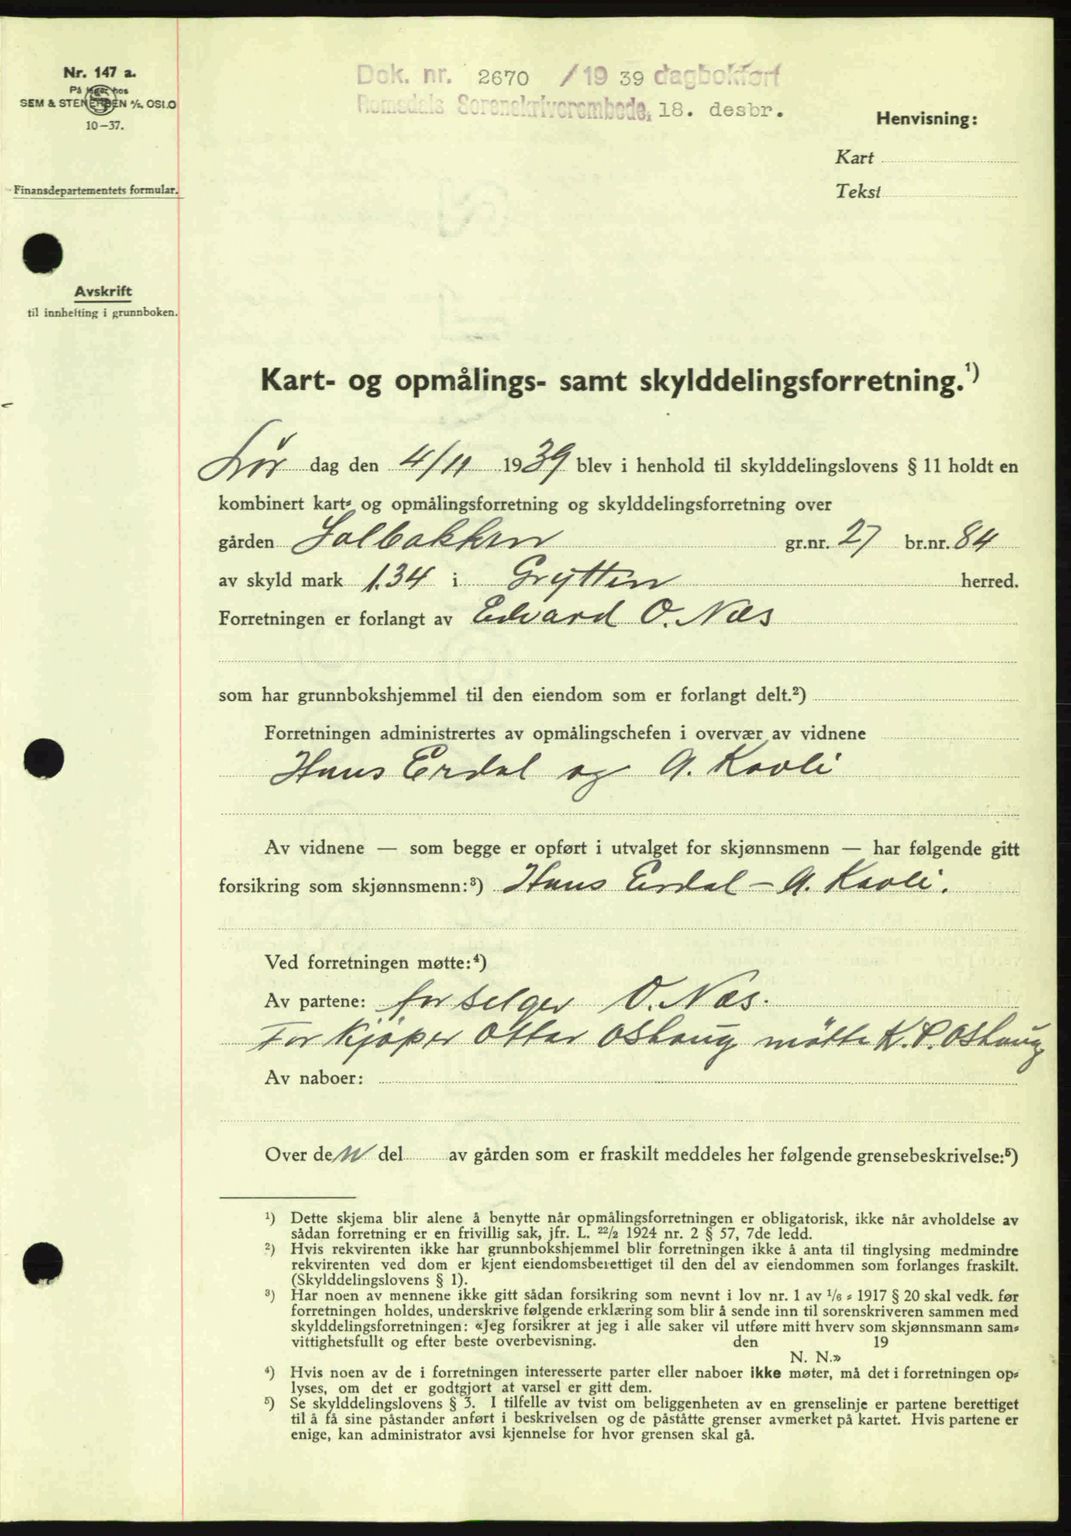 Nr. 147 a.
På lager hos
SEM & STENERSEN A/S, OSLO
10-37.
Finansdepartementets formular.
Avskrift
til innhefting i grunnboken.
Dok. nr. 2670 /19 39 dagbokført
Romsdals Sorenskriverembede, 18. desbr.
Henvisning:
Kart
Tekst
Kart- og opmålings- samt skylddelingsforretning.¹)
Lør dag den 4/11 1939 blev i henhold til skylddelingslovens § 11 holdt en
kombinert kart- og opmålingsforretning og skylddelingsforretning over
gården Solbakken gr.nr. 27 br.nr. 84
av skyld mark 1.34 i Grytten herred.
Forretningen er forlangt av Edvard O. Næs
som har grunnbokshjemmel til den eiendom som er forlangt delt.²)
Forretningen administrertes av opmålingschefen i overvær av vidnene
Hans Erdal og A. Kavli
Av vidnene — som begge er opført i utvalget for skjønnsmenn — har følgende gitt
forsikring som skjønnsmenn:³) Hans Erdal - A. Kavli.
Ved forretningen møtte:⁴)
Av partene: for selger O. Næs.
For kjöper Ottar Oshaug mötte K. P. Oshaug
Av naboer:
Over den del av gården som er fraskilt meddeles her følgende grensebeskrivelse:⁵)
¹) Dette skjema blir alene å benytte når opmålingsforretningen er obligatorisk, ikke når avholdelse av
sådan forretning er en frivillig sak, jfr. L. 22/2 1924 nr. 2 § 57, 7de ledd.
²) Hvis rekvirenten ikke har grunnbokshjemmel blir forretningen ikke å anta til tinglysing medmindre
rekvirenten ved dom er kjent eiendomsberettiget til den del av eiendommen som forlanges fraskilt.
(Skylddelingslovens § 1).
³) Har noen av mennene ikke gitt sådan forsikring som nevnt i lov nr. 1 av 1/6 - 1917 § 20 skal vedk. før
forretningen holdes, underskrive følgende erklæring som blir å sende inn til sorenskriveren sammen med
skylddelingsforretningen: «Jeg forsikrer at jeg i alle saker vil utføre mitt hverv som skjønnsmann sam-
vittighetsfullt og efter beste overbevisning. den 19
N. N.»
⁴) Hvis noen av de i forretningen interesserte parter eller naboer ikke møter, må det i forretningen op-
lyses, om det er godtgjort at varsel er gitt dem.
⁵) Se skylddelingslovens § 3. I tilfelle av tvist om beliggenheten av en grenselinje er partene berettiget
til å få sine påstander anført i beskrivelsen og de påståtte grenser avmerket på kartet. Hvis partene er
enige, kan administrator avsi kjennelse for hvor grensen skal gå.